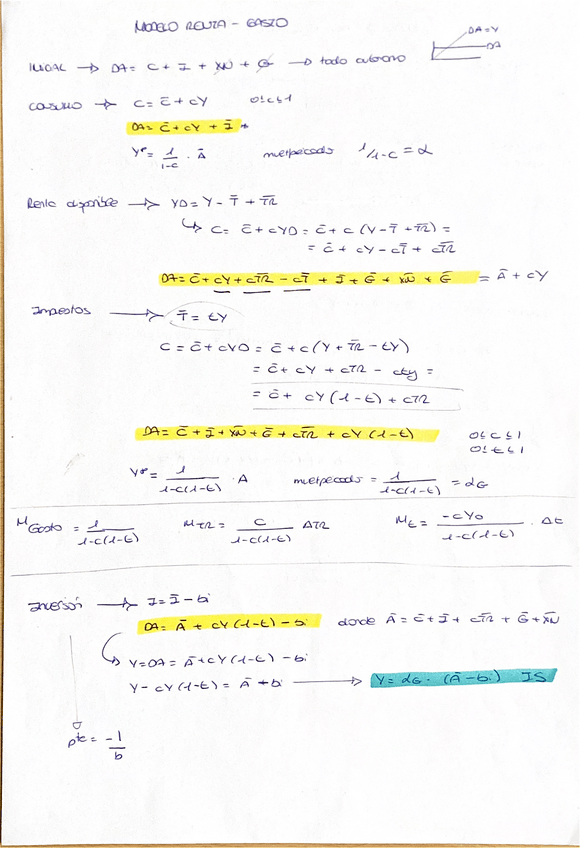 MODELO RENTA - GASTO
DA=Y
DA
INICIAL → DA = C + I + XN + G → todo autonomo
CONSUMO → C = C̄ + cY 0≤c≤1
DA = C̄ + cY + Ī
Y* = 1/1-c · Ā multiplicador 1/1-c = α
Renta disponible → YD = Y - T̄ + TR̄
↳ C = C̄ + cYD = C̄ + c (Y - T̄ + TR̄) =
= C̄ + cY - cT̄ + cTR̄
DA = C̄ + cY + cTR̄ - cT̄ + Ī + Ḡ + XN̄ + Ḡ = Ā + cY
Impuestos → T̄ = tY
C = C̄ + cYD = C̄ + c(Y + TR̄ - tY)
= C̄ + cY + cTR - cty =
= C̄ + cY(1-t) + cTR
DA = C̄ + Ī + XN̄ + Ḡ + cTR̄ + cY(1-t) 0≤c≤1
0≤t≤1
Y* = 1/1-c(1-t) · A multiplicador = 1/1-c(1-t) = αG
M Gasto = 1/1-c(1-t) M TR = c/1-c(1-t) ΔTR M t = -cY0/1-c(1-t) · Δt
Inversión → I = Ī - bi
DA = Ā + cY(1-t) - bi donde Ā = C̄ + Ī + cTR̄ + Ḡ + XN̄
↳ Y = DA = Ā + cY(1-t) - bi
Y - cY(1-t) = Ā - bi → Y = αG · (Ā - bi) IS
pte = -1/b